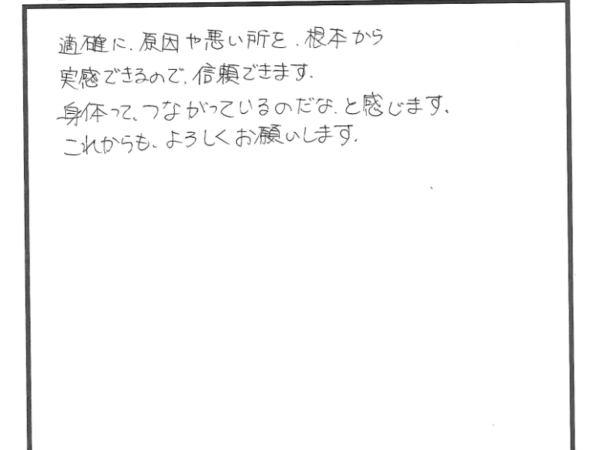 適確に、原因や悪い所を、根本から
実感できるので、信頼できます。
身体って、つながっているのだな、と感じます。
これからも、よろしくお願いします。